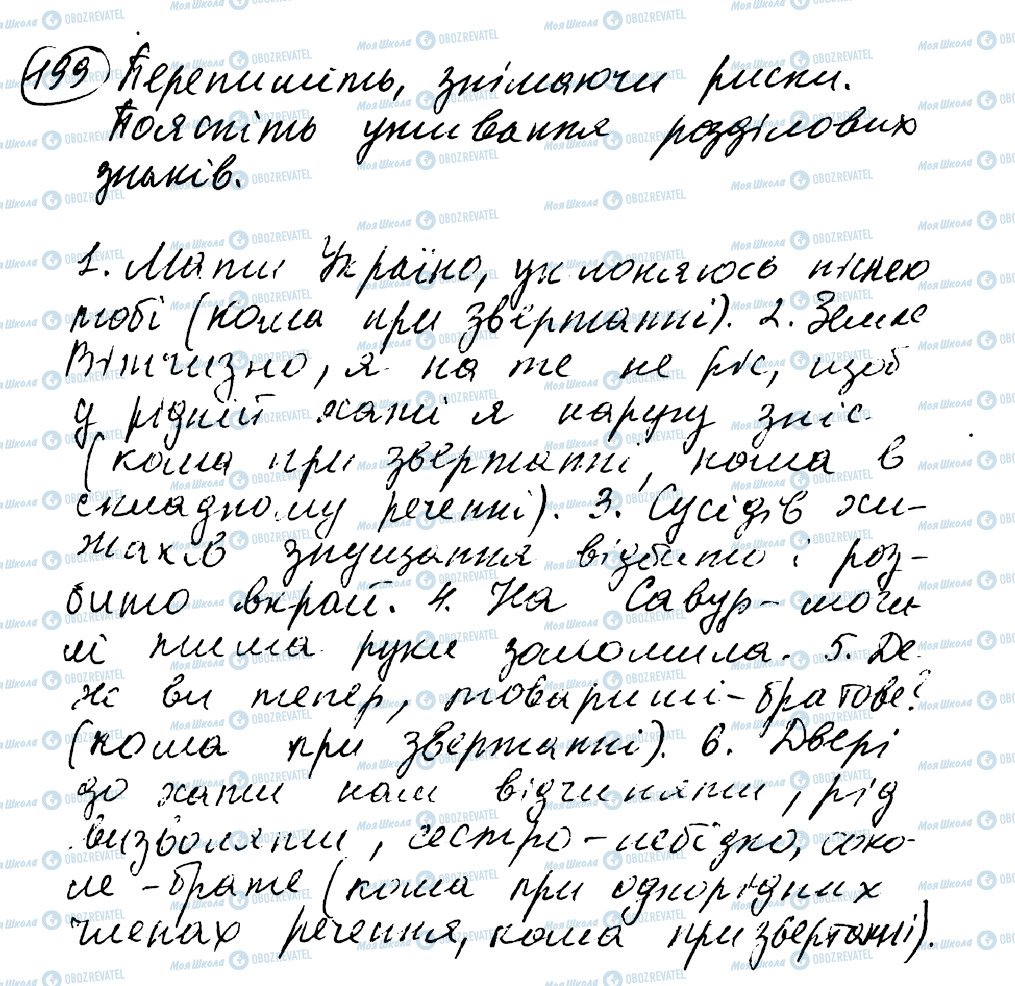 199 Перепишіть, знімаючи риски.
Поясніть уживання розділових
знаків.
1. Мати Україно, уклоняюсь піснею
тобі (кома при звертанні). 2. Земле
Вітчизно, я на те не ріс, щоб
у рідній хаті я наругу зніс
(кома при звертанні, кома в
складному реченні). 3. Сусідів хи-
жаків знущання відбито і роз-
бито вкрай. 4. На Савур-моги-
лі тиша руки заломила. 5. Де
ж ви тепер, товариші-братове?
(кома при звертанні). 6. Двері
до хати нам відчиняти, рід
визволяти, сестро-небідко, соко-
ле-брате (кома при однорідних
членах речення, кома при звертанні).